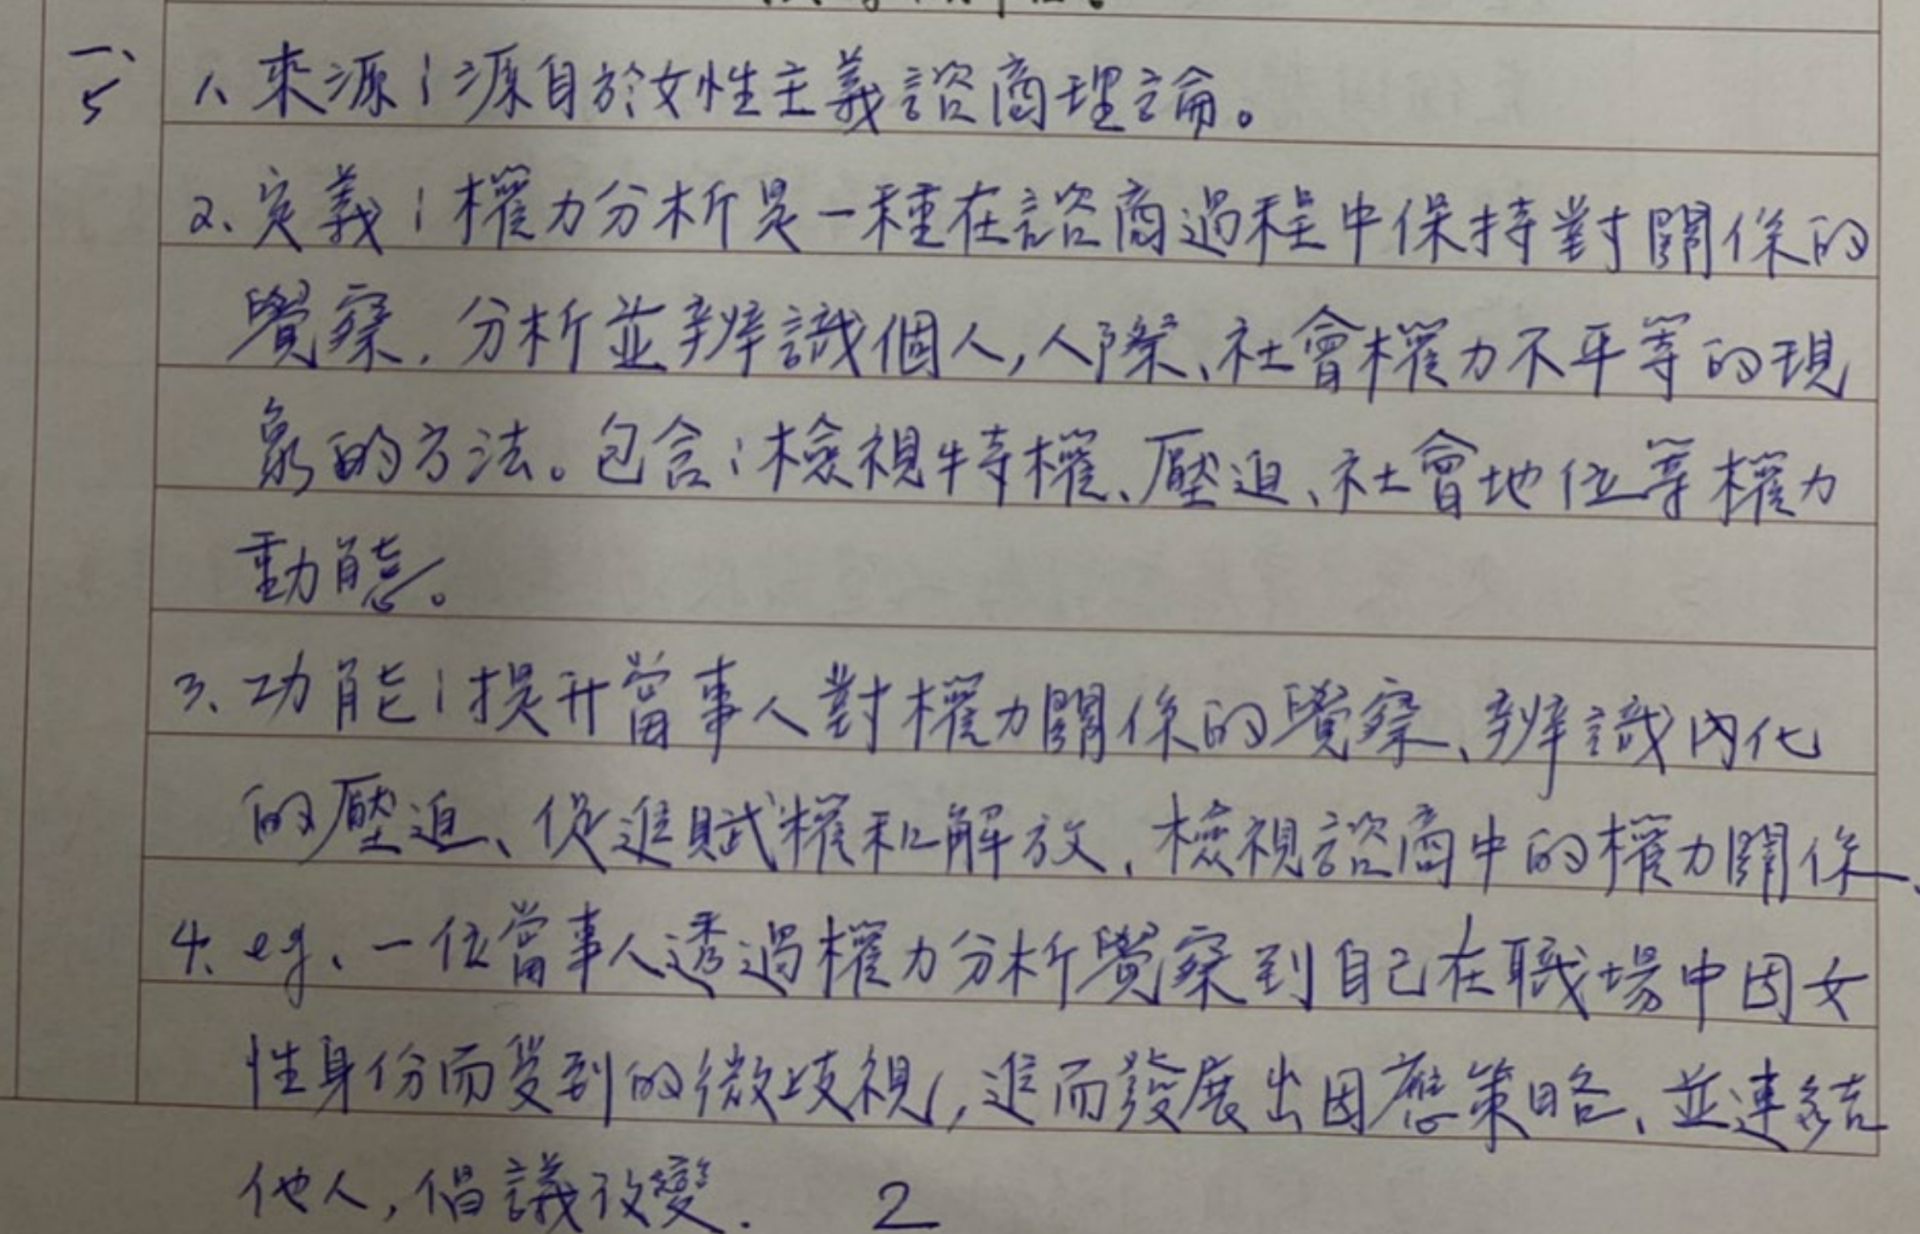 一、
5
1、來源：源自於女性主義諮商理論。
2、定義：權力分析是一種在諮商過程中保持對關係的
覺察，分析並辨識個人，人際、社會權力不平等的現
象的方法。包含：檢視特權、壓迫、社會地位等權力
動態。
3、功能：提升當事人對權力關係的覺察、辨識內化
的壓迫、促進賦權和解放、檢視諮商中的權力關係、
4、eg、一位當事人透過權力分析覺察到自己在職場中因女
性身份而受到的微歧視，進而發展出因應策略、並連結
他人，倡議改變.
2